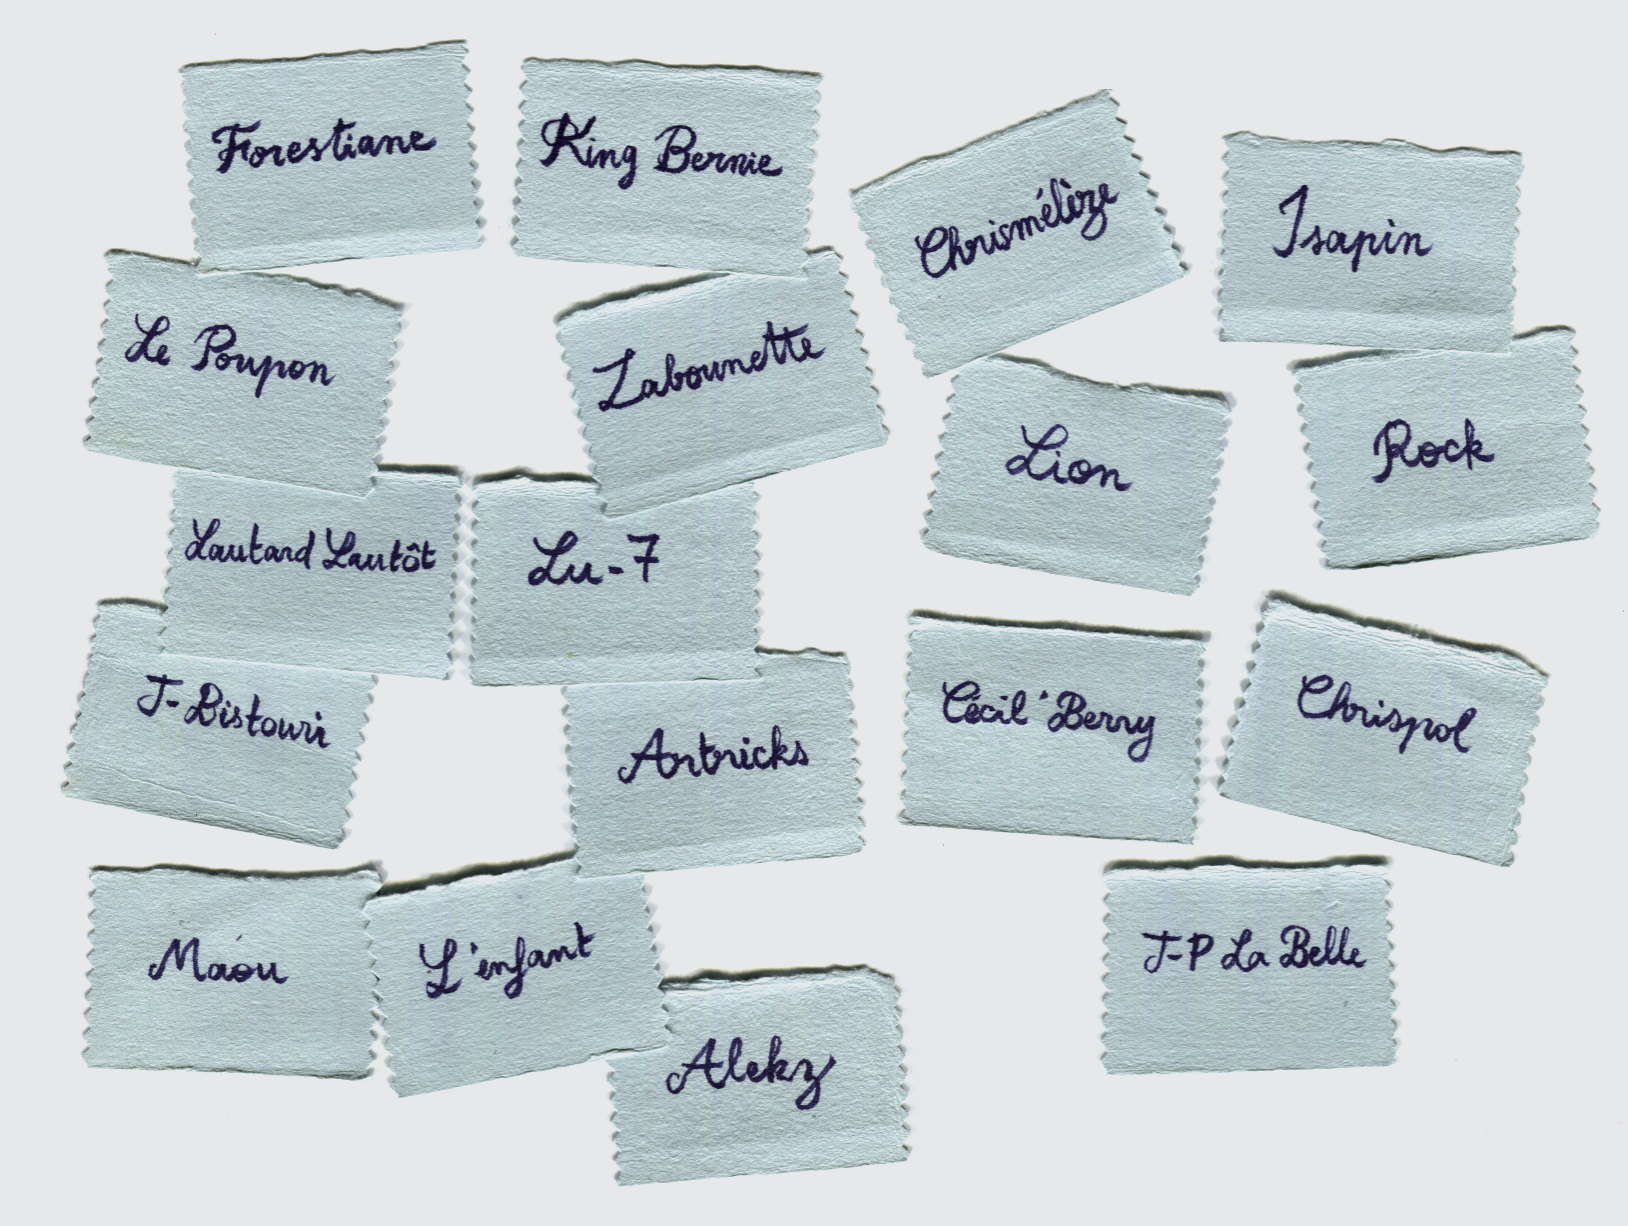 Forestiane
King Bernie
Chrismélèze
Isapin
Le Poupon
Labounette
Lion
Rock
Lautard Lautôt
Lu-7
J-Bistouri
Artricks
Cécil'Berry
Chrispol
Maou
L'enfant
J-P La Belle
Alekz